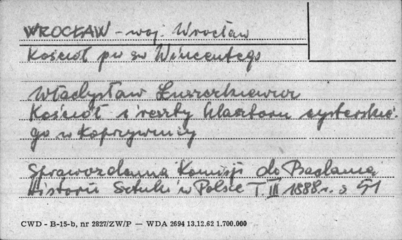 WROCŁAW - woj. Wrocław
Kościół pw św Wincentego
Władysław Łuszczkiewicz
Kościół i reszty klasztoru cysterskie-
go w Koprzywnicy
Sprawozdania Komisji do Badania
Historii Sztuki w Polsce T. III 1888 r. s 51
CWD - B-15-b, nr 2827/ZW/P — WDA 2694 13.12.62 1.700.000